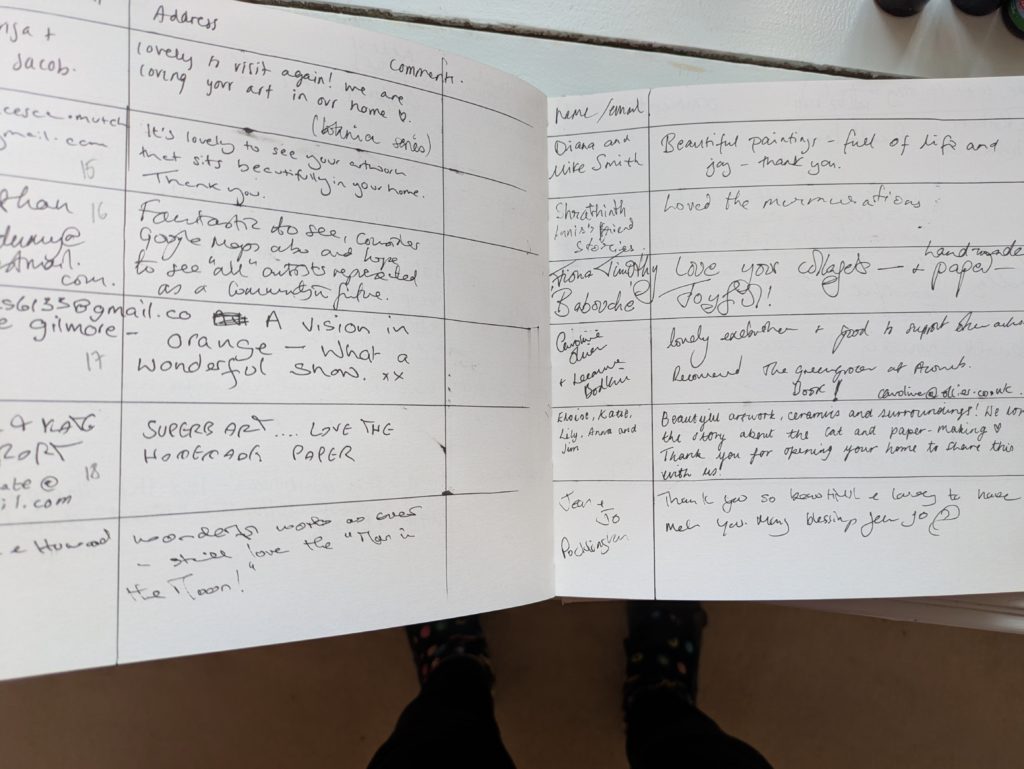 Address
comments.
Jacob.
Lovely to visit again! We are
loving your art in our home
(botanica series)
gmail.com
15
It's lovely to see your artwork
that sits beautifully in your home.
Thank you.
16
com.
Fantastic to see, consider
Google Maps also and hope
to see "all" artists represented
as a community in future.
s6135@gmail.co A vision in
gilmore - orange - what a
17
wonderful show. xx
& KATE
18
ate@
il.com
SUPERB ART.... LOVE THE
HOMEMADE PAPER
wonderful works as ever
- still love the "Man in
the Moon!"
name/email
Diana and
Mike Smith
Beautiful paintings - full of life and
joy - thank you.
friend
Loved the murmurations
Fiona Timothy
Babouche
Love your collages - + handmade
paper -
Joyful!
Caroline
Oliver
+ Leanne
lovely exhibition + good to support other
Recommend The greengrocer at
Book!
Eloise, Katie,
Lily, Anna and
Jim
Beautiful artwork, ceramics and surroundings! We
the story about the cat and paper-making ♡
Thank you for opening your home to share this
with us!
Jean +
Jo
Thank you so beautiful & lovely to have
met you. Many blessings Jean Jo